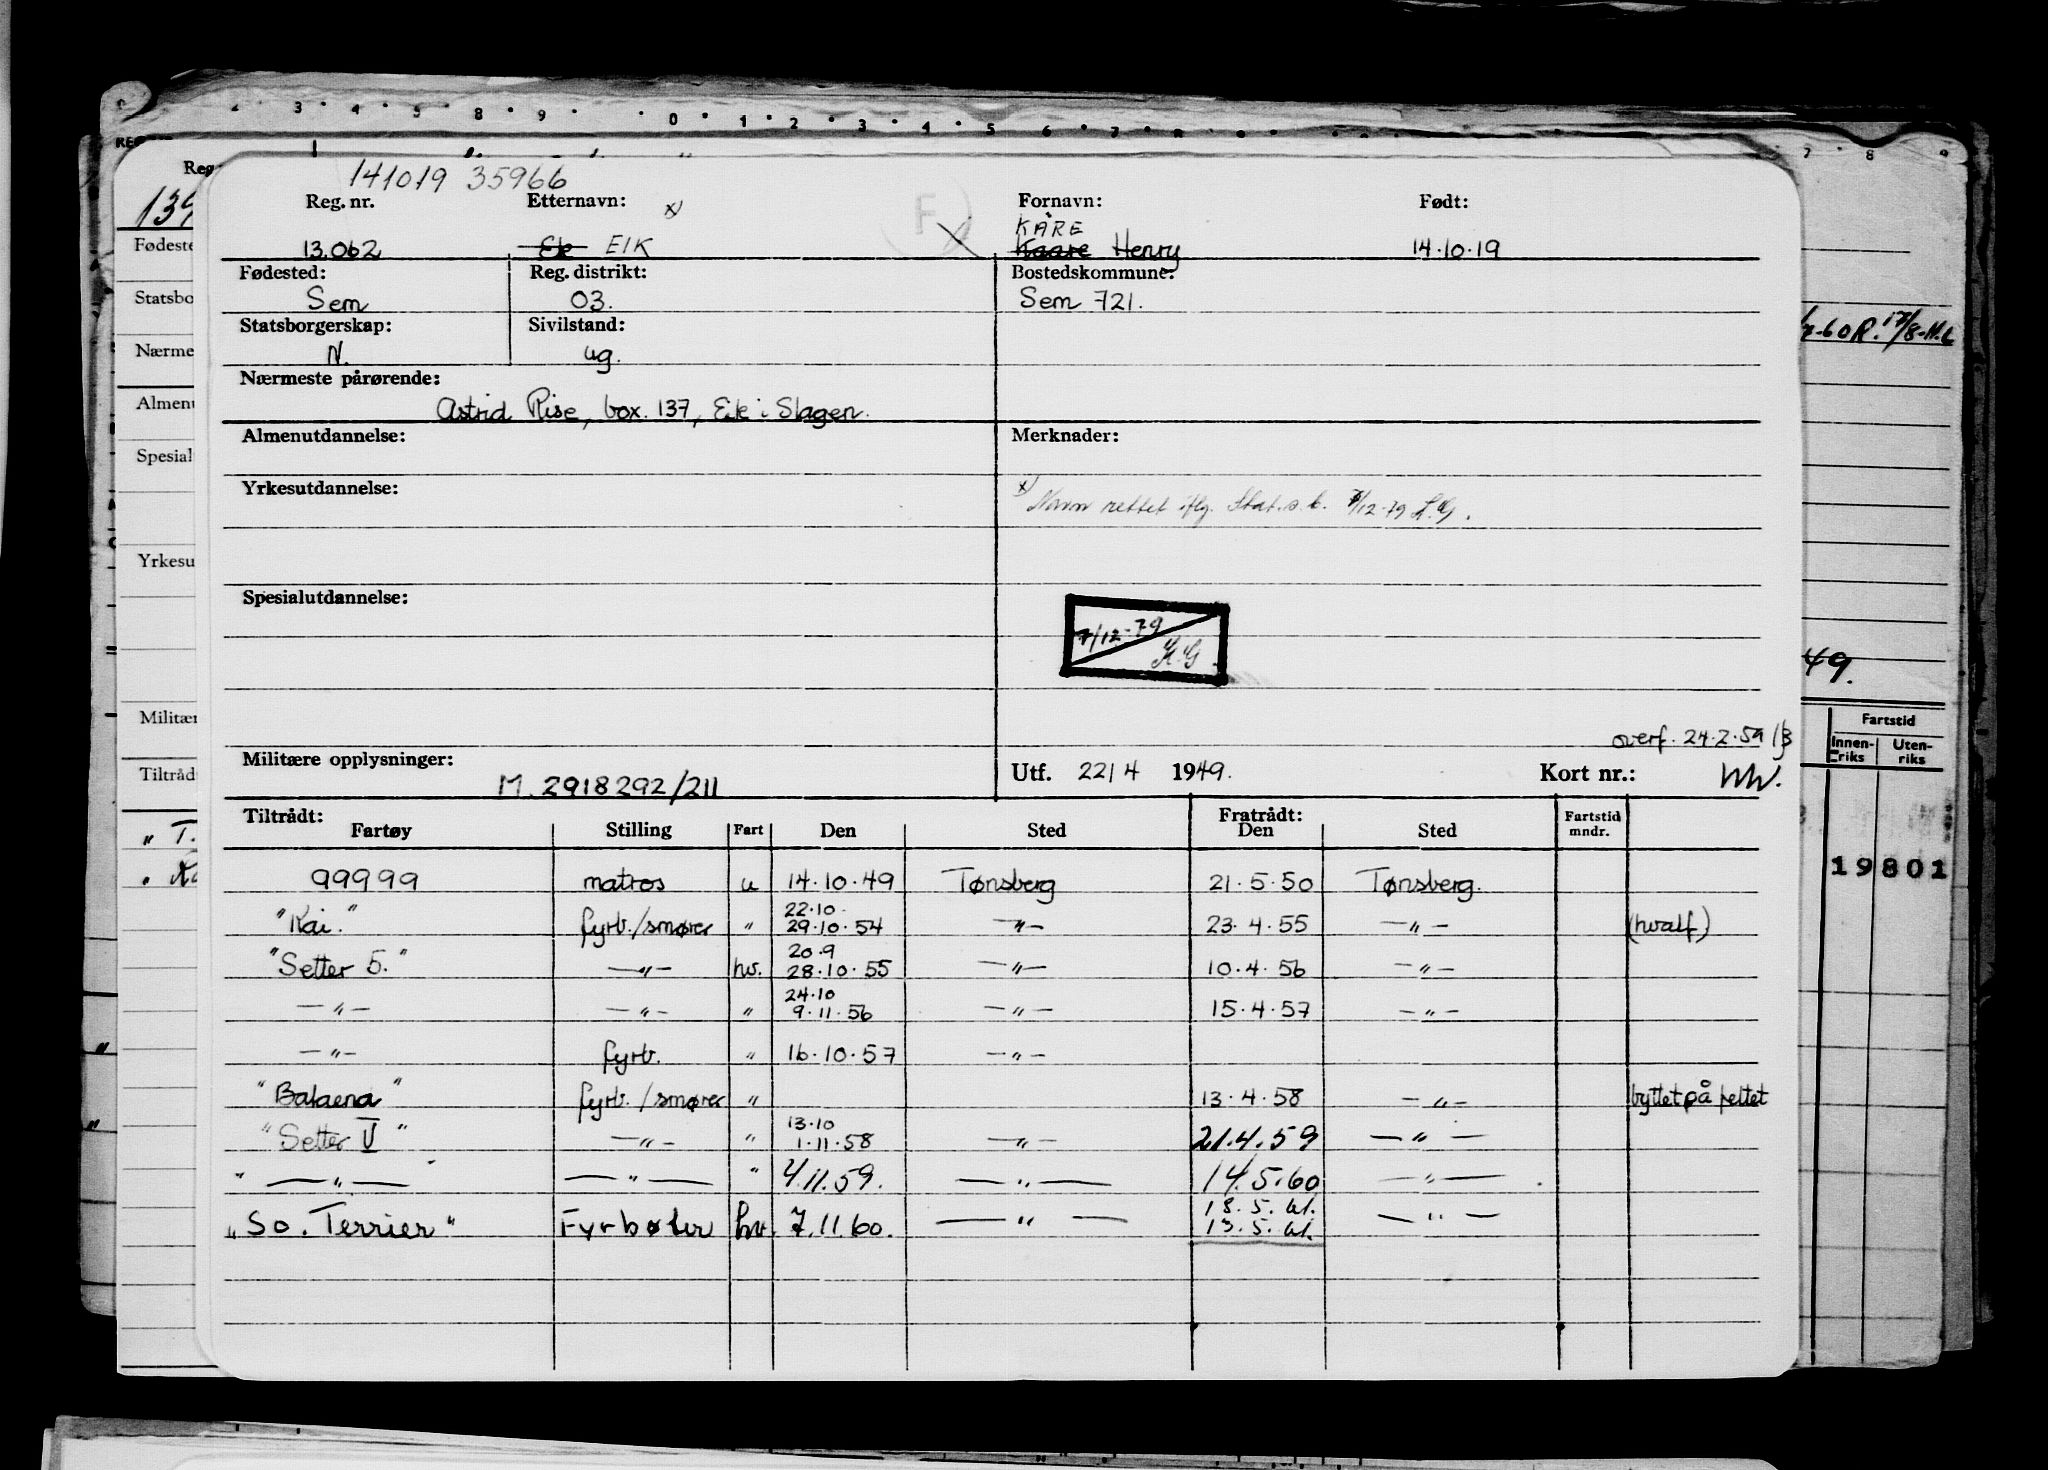 3 4 5 8 9 0 1 2 3 4 5 6 7 8
7 8 9
141019 35966
Reg. nr. Etternavn: x) F Fornavn: Født:
KÅRE
13.062 Ek EIK Kaare Henry 14.10.19
Fødested: Reg. distrikt: Bostedskommune:
Sem 03. Sem 721.
Statsborgerskap: Sivilstand:
N. ug.
Nærmeste pårørende:
Astrid Rise, box. 137, Eik i Slagen.
Almenutdannelse: Merknader:
Yrkesutdannelse:
x) Navn rettet iflg. Stat.s.b. 7/12-79
Spesialutdannelse:
7/12-79
overf. 24.2.59
Militære opplysninger: Utf. 22/4 1949. Kort nr.:
M. 2918292/211
Tiltrådt: Fratrådt:
Fartøy Stilling Fart Den Sted Den Sted Fartstid mndr.
99999 matros u 14.10.49 Tønsberg 21.5.50 Tønsberg.
"Kai." fyrb./smører " 22.10 29.10.54 —"— 23.4.55 —"— (hvalf)
"Setter 5." —"— hv. 20.9 28.10.55 —"— 10.4.56 —"—
—"— —"— " 24.10 9.11.56 —"— 15.4.57 —"—
—"— fyrb. " 16.10.57 —"—
"Balaena" fyrb./smører " 13.4.58 —"— byttet på feltet
"Setter V" —"— " 13.10 1.11.58 —"— 21.4.59 —"—
" —"— —"— " 4.11.59. —"— 14.5.60 —"—
"So. Terrier" Fyrbøter hv. 7.11.60. —"— 18.5.61. 13.5.61. —"—
Reg
Fødeste
Statsbo
Nærme
Almenu
Spesial
Yrkesu
Militær
Tiltråd
" T.
49.
Fartstid
Innen-riks Uten-riks
19801